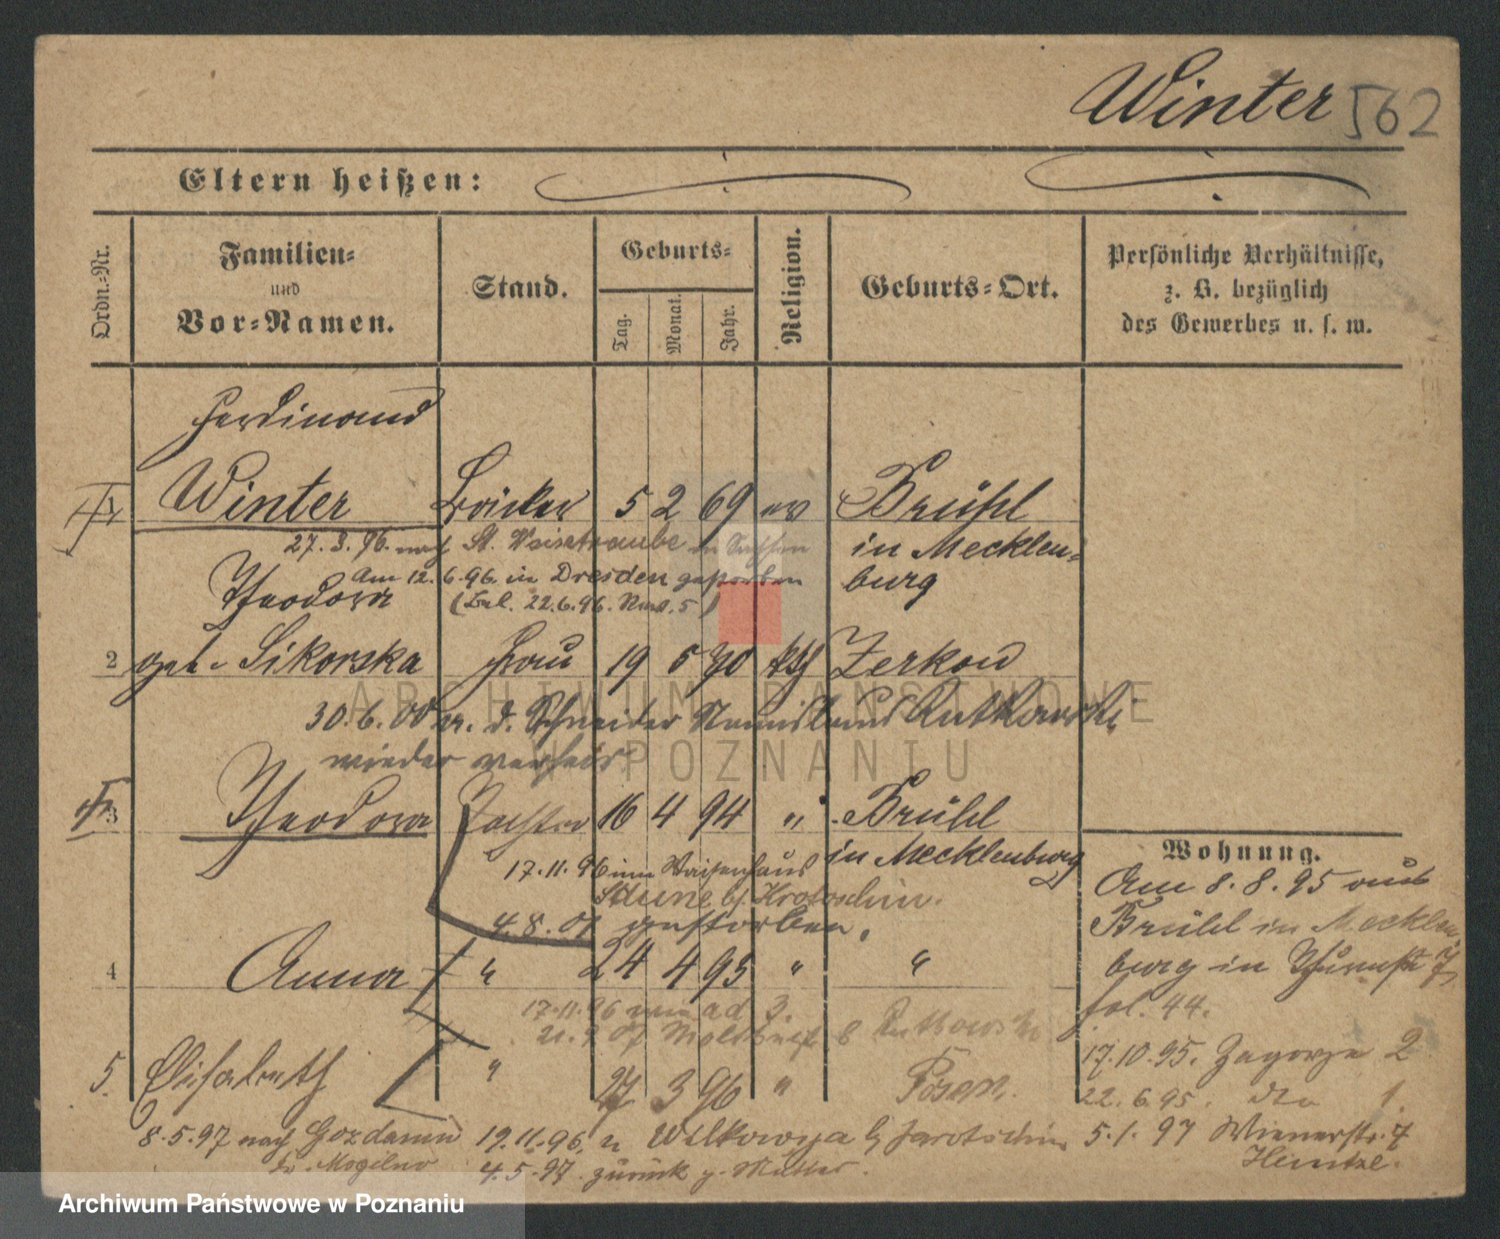 Winter 562
Eltern heißen:
Ordn.-Nr.
Familien-
und
Vor-Namen.
Stand.
Geburts-
Tag.
Monat.
Jahr.
Religion.
Geburts-Ort.
Persönliche Verhältnisse,
z. B. bezüglich
des Gewerbes u. s. w.
Ferdinand
Winter 5 2 69 ev Brühl
27. 3. 96. nach St.
in Mecklen-
burg
Am 12. 6. 96. in Dresden gestorben
Theodora
22. 6. 96.
2 geb. Sikorska Frau 19 5 70 kth Zerkow
30. 6. 00 m. d. Schneider Rutkowski
wieder verheir.
3 Theodora Tochter 16 4 94 " Brühl
in Mecklenburg
17. 11. 96 im Waisenhaus
b. Krotoschin.
4. 8. 01 gestorben.
4 Anna " 24 4 95 " "
17. 11. 96 wie ad 3.
Rutkowski
5. Elisabeth " 27 3 96 " Posen.
8. 5. 97 nach
Mogilno
19. 11. 96. n Wilkowyja b Jarotschin
4. 5. 97. zurück z. Mutter.
Wohnung.
Am 8. 8. 95 aus
Brühl in Mecklen
burg in
fol. 44.
17. 10. 95. Zagorze 2
22. 6. 95. dto 1.
5. 1. 97 Wienerstr. 7
Hentze.
ARCHIWUM PAŃSTWOWE
W POZNANIU
Archiwum Państwowe w Poznaniu